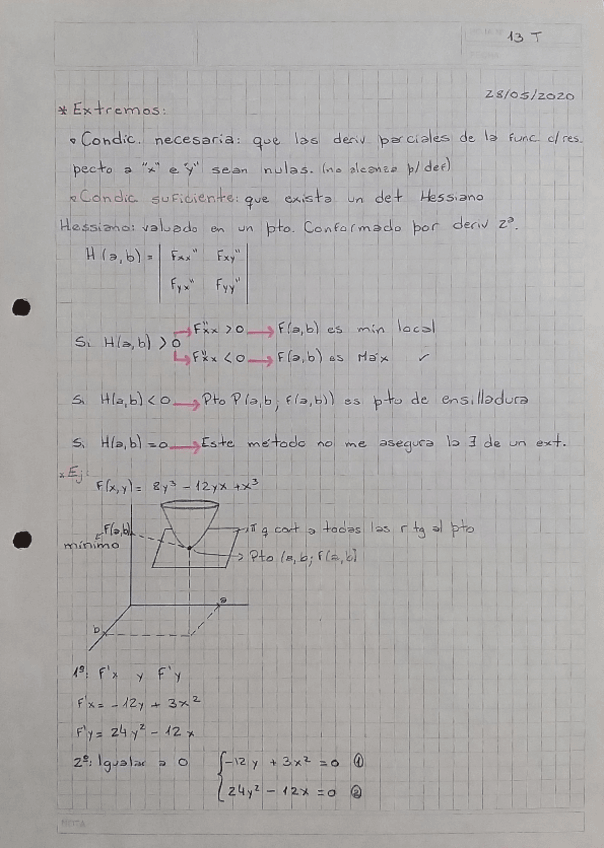 13 T
28/05/2020
* Extremos:
• Condic. necesaria: que las deriv parciales de la func c/res
pecto a "x" e "y" sean nulas. (no alcanza p/def)
• Condic suficiente: que exista un det Hessiano
Hessiano: valuado en un pto. Conformado por deriv 2ª.
H (a,b) = | Fxx" Fxy" |
| Fyx" Fyy" |
→ F"xx > 0 → F(a,b) es min local
Si H(a,b) > 0
→ F"xx < 0 → F(a,b) es Máx ✓
Si H(a,b) < 0 → Pto P(a,b; f(a,b)) es pto de ensilladura
Si H(a,b) = 0 → Este método no me asegura la ∃ de un ext.
• Ej:
F(x,y) = 8y³ - 12yx + x³
F(a,b)
mínimo
π q cont a todas las r tg al pto
Pto (a,b; F(a,b)
a
b
1º: F'x y F'y
F'x = -12y + 3x²
F'y = 24y² - 12x
2º: Igualar a 0 { -12y + 3x² = 0 ①
24y² - 12x = 0 ②